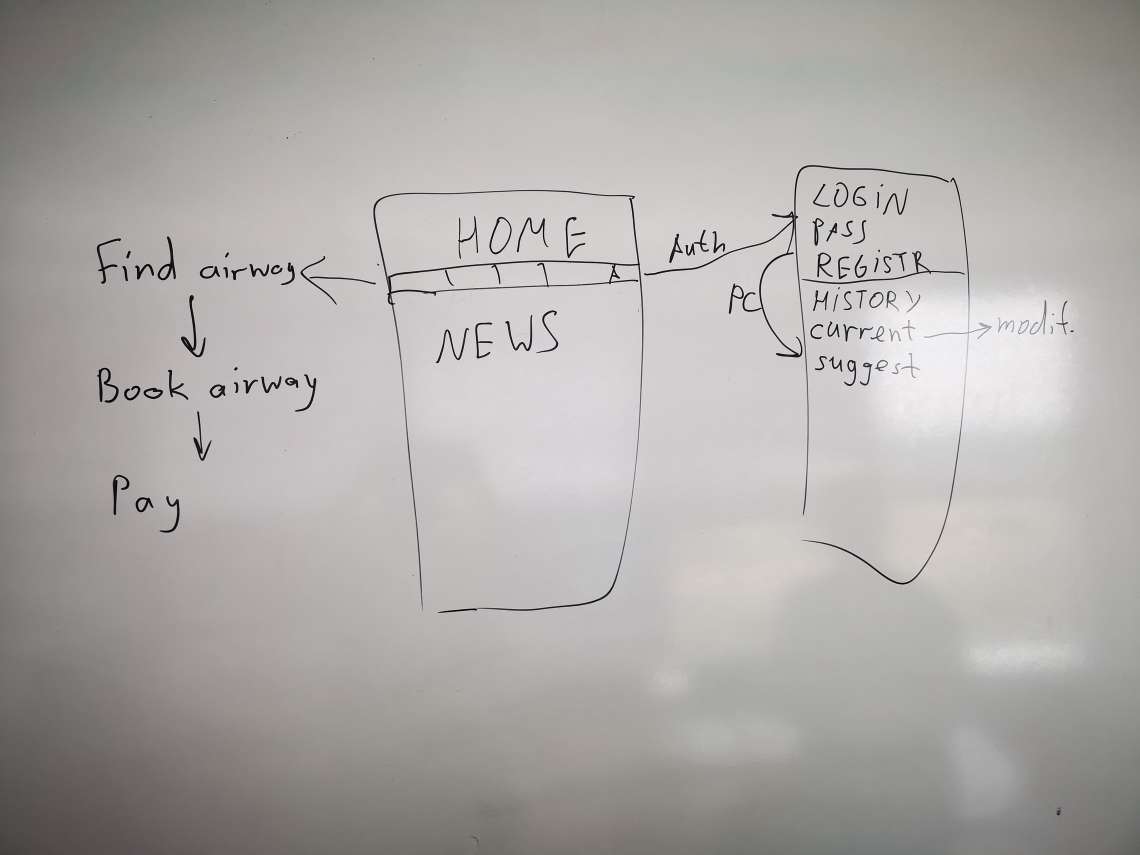 Find airway
Book airway
Pay
HOME
A
NEWS
Auth
PC
LOGiN
PASS
REGiSTR
HiSTORY
current
modif.
suggest